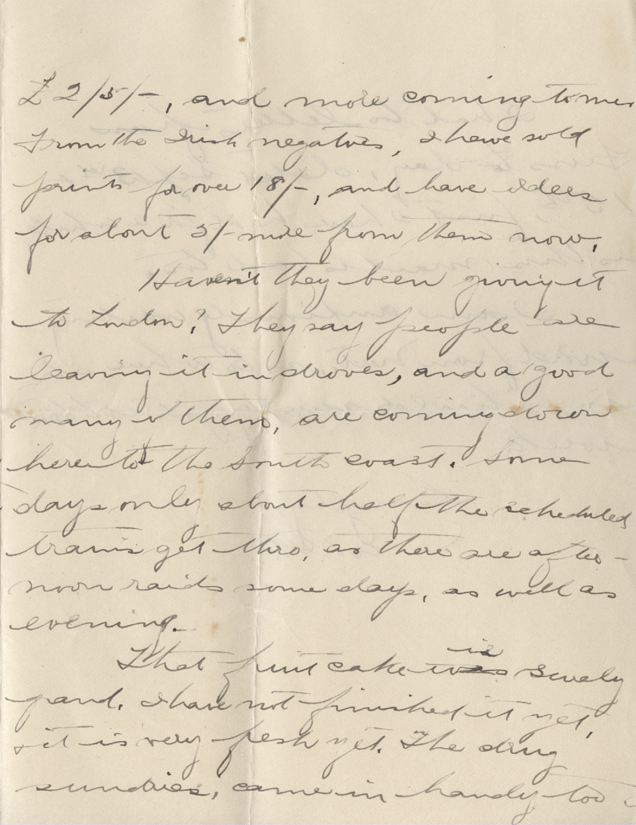 £2/5/-, and more coming to me.
From the Irish negatives, I have sold
prints for over 18/-, and have orders
for about 5/- more from them now.
Haven't they been giving it
to London? They say people are
leaving it in droves, and a good
many of them, are coming down
here to the South coast. Some
days only about half the scheduled
trains get thro, as there are after-
noon raids some days, as well as
evening.
That fruit cake was is surely
grand. I have not finished it yet,
& it is very fresh yet. The drug
sundries, came in handy too